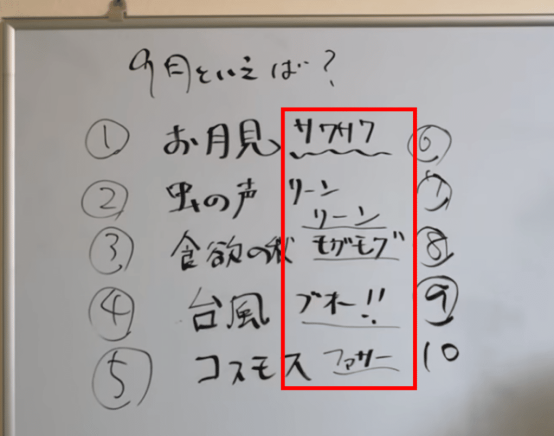 9月といえば?
① お月見 サワサワ ⑥
② 虫の声 リーン リーン ⑦
③ 食欲の秋 モグモグ ⑧
④ 台風 ブオー!! ⑨
⑤ コスモス ファサー 10